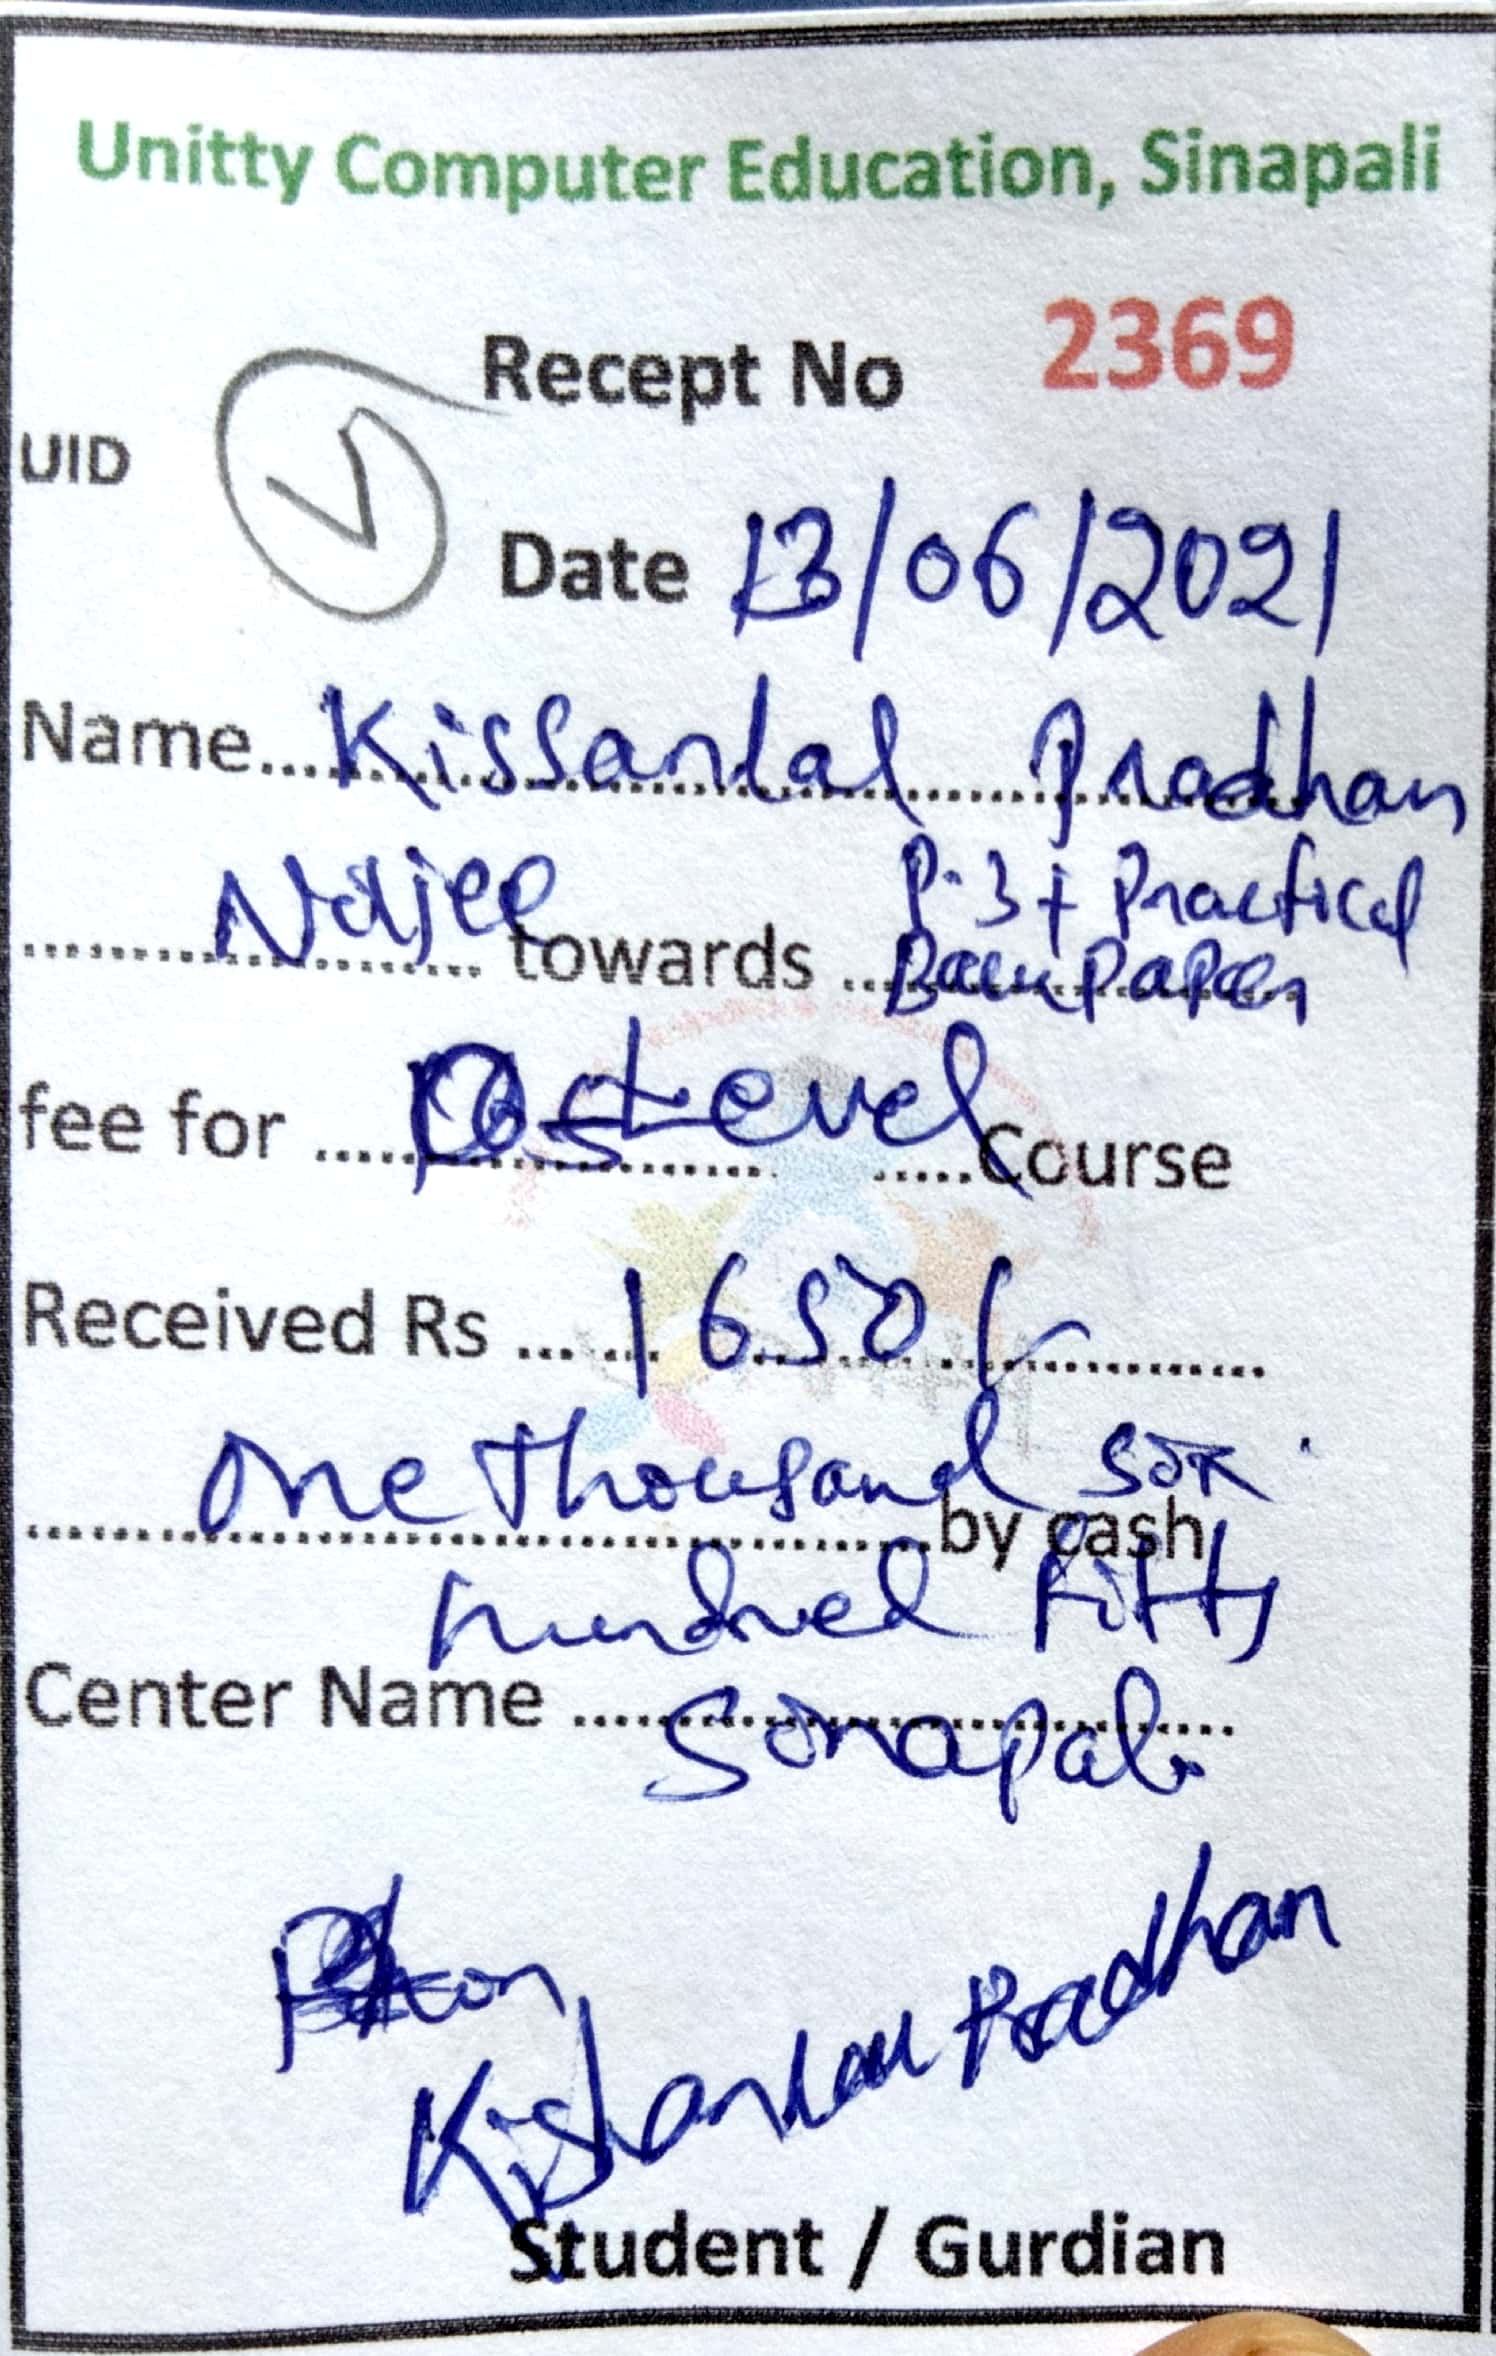 Unitty Computer Education, Sinapali
Recept No 2369
UID
Date 13/06/2021
Name... Kissanlal Pradhan
P-3 + Practical
towards ... Paper
fee for .... Level Course
Received Rs ... 1650/-
one thousand six
by cash
hundred fifty
Center Name ... Sinapali
Kishanlal Pradhan
Student / Gurdian